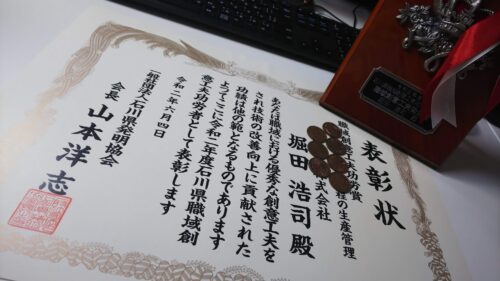 表彰状
職域創意工夫功労賞
社の生産管理
式会社
堀田 浩司 殿
あなたは職域における優秀な創意工夫を
され技術の改善向上に貢献された
功績は他の範となるものであります
よってここに令和二年度石川県職域創
意工夫功労者として表彰します
令和二年六月四日
一般社団法人石川県発明協会
会長 山本洋志